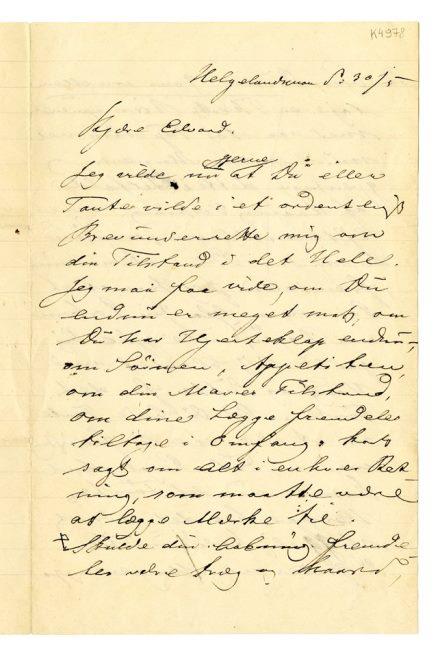 K4978
Helgelandsmoen d: 30/5
Kjære Edvard.
Jeg vilde nu gjerne at Du eller
Tante vilde i et ordentligt
Brev underrette mig om
din Tilstand i det Hele.
Jeg maa faa vide, om Du
endnu er meget mat, om
Du har Hjerteklap endnu,
om Søvnen, Appetiten,
om din Maves Tilstand,
om dine Lægge fremdeles
tiltage i Omfang, kort
sagt om alt i enhver Ret
ning, som maatte være
at lægge Mærke til.
Skulde din fremde
les være træg og haard,